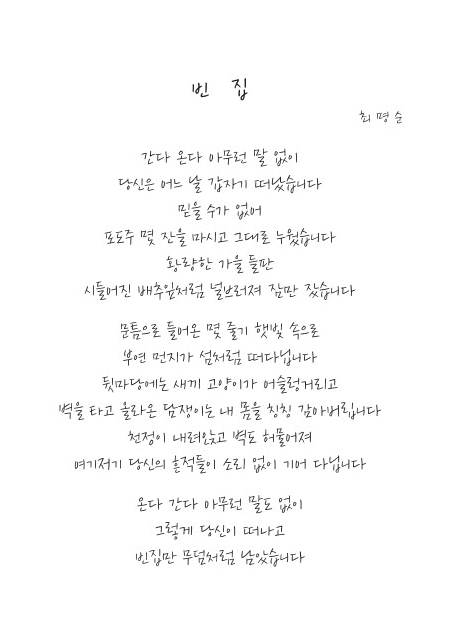 빈 집
최명순
간다 온다 아무런 말 없이
당신은 어느 날 갑자기 떠났습니다
믿을 수가 없어
포도주 몇 잔을 마시고 그대로 누웠습니다
황량한 가을 들판
시들어진 배추잎처럼 널브러져 잠만 잤습니다
문틈으로 들어온 몇 줄기 햇빛 속으로
부연 먼지가 섬처럼 떠다닙니다
뒷마당에는 새끼 고양이가 어슬렁거리고
벽을 타고 올라온 담쟁이는 내 몸을 칭칭 감아버립니다
천정이 내려앉고 벽도 허물어져
여기저기 당신의 흔적들이 소리 없이 기어 다닙니다
온다 간다 아무런 말도 없이
그렇게 당신이 떠나고
빈집만 무덤처럼 남았습니다